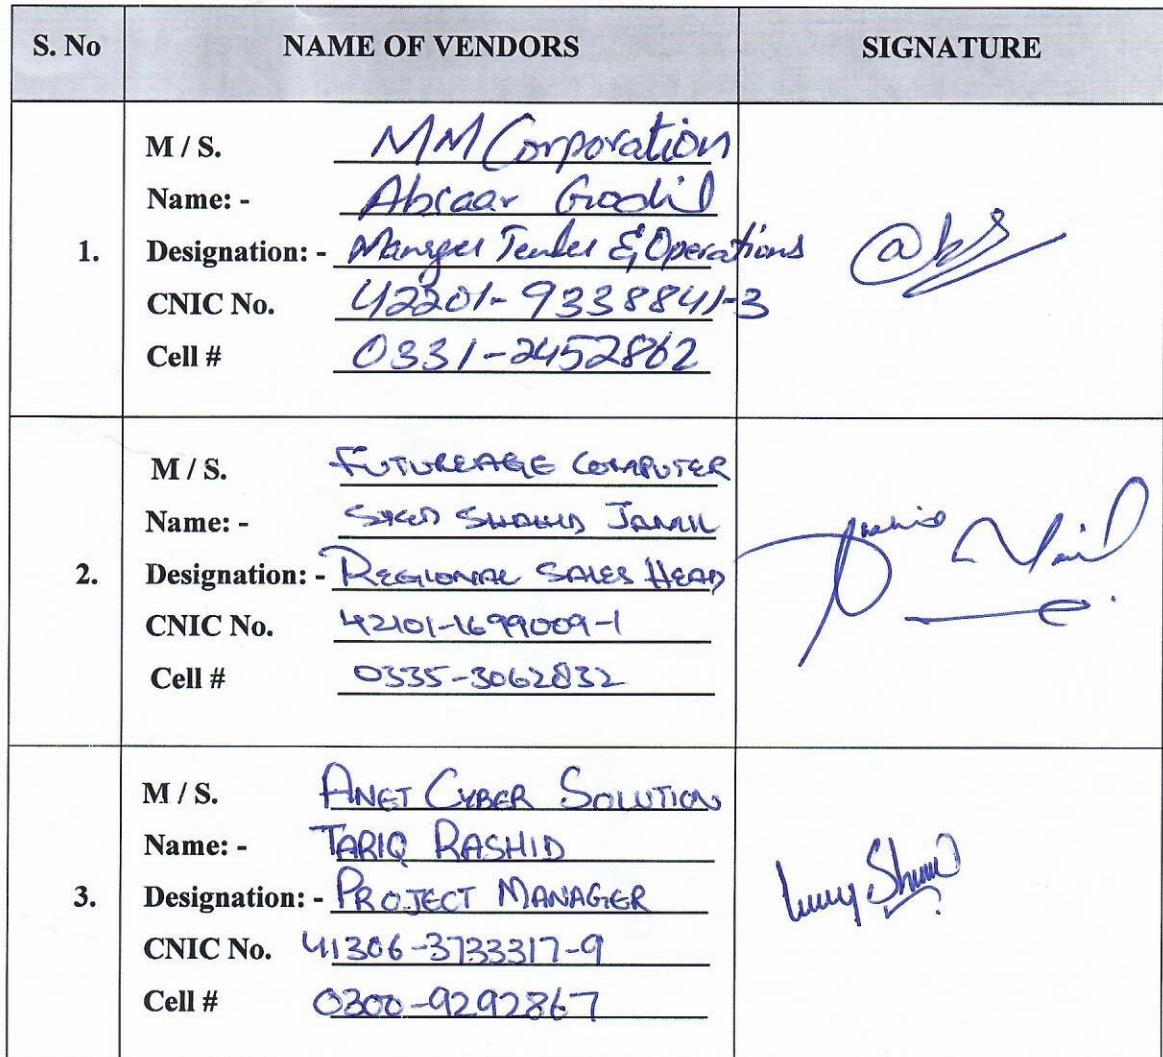 S. No NAME OF VENDORS SIGNATURE
1.
M / S. MM Corporation
Name: - Absaar Godil
Designation: - Manager Tender & Operations
CNIC No. 42201-9338841-3
Cell # 0331-2452862
2.
M / S. FUTUREAGE COMPUTER
Name: - SYED SHAHID JAMIL
Designation: - REGIONAL SALES HEAD
CNIC No. 42101-1699009-1
Cell # 0335-3062832
3.
M / S. ANET CYBER SOLUTION
Name: - TARIQ RASHID
Designation: - PROJECT MANAGER
CNIC No. 41306-3733317-9
Cell # 0300-9292867